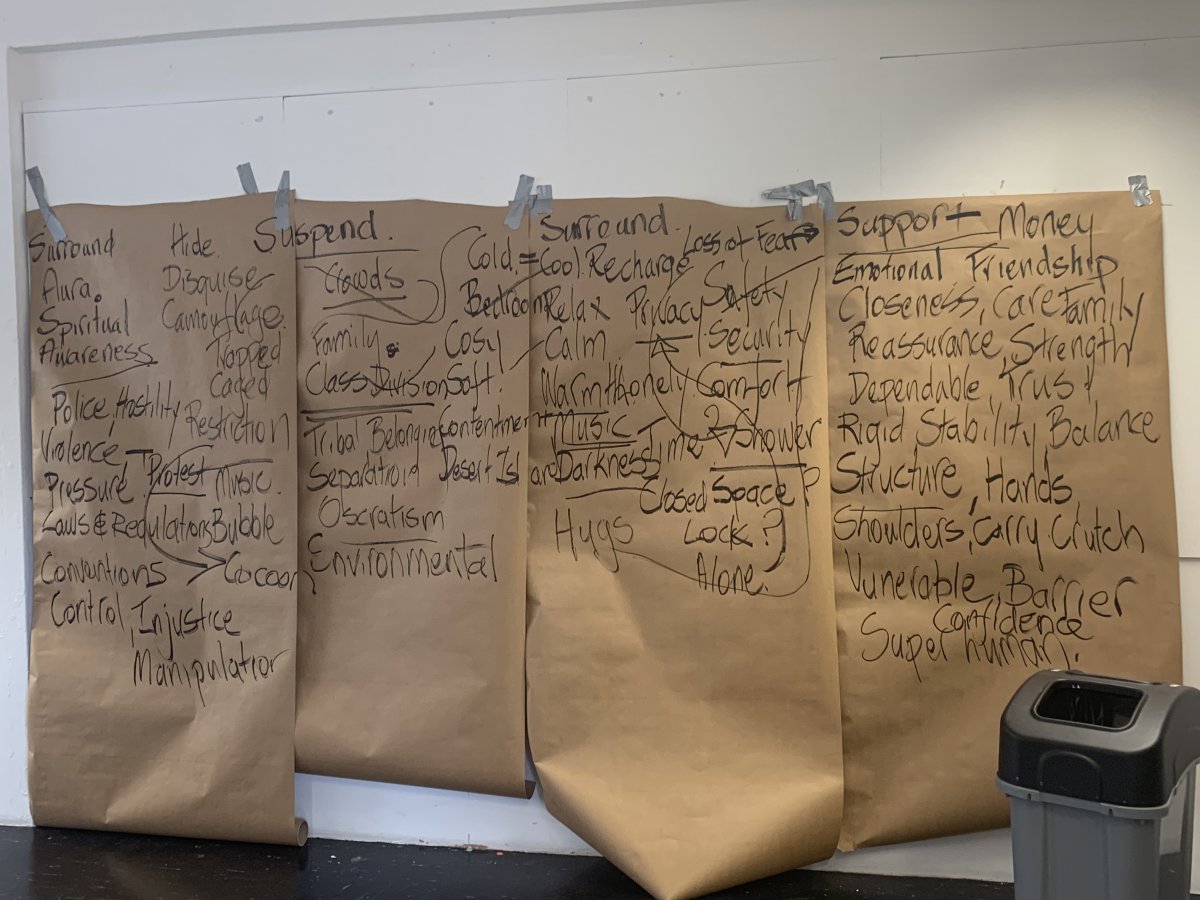 Surround Hide.
Aura. Disguise
Spiritual Camouflage.
Awareness Trapped
Caged
Police, Hostility Restriction
Violence, Protest Music.
Pressure,
Laws & Regulations Bubble
Conventions Cocoon
Control, Injustice
Manipulation
Suspend.
Crowds
Family. Cosy
Class Division Soft.
Tribal Belonging Contentment
Separatroid Desert Island
Oscratism
Environmental
Cold. =
Bedroom
Surround. Loss of Fear
Cool. Recharge Safety
Relax Privacy
Calm Security
Warmth Lonely. Comfort
Music Time Shower
Darkness
Closed Space ?
Hugs Lock ?
Alone.
Support - Money
Emotional Friendship
Closeness, Care Family
Reassurance, Strength
Dependable, Trust
Rigid Stability Balance
Structure, Hands
Shoulders, Carry Crutch
Vunerable, Barrier
Confidence
Super human.